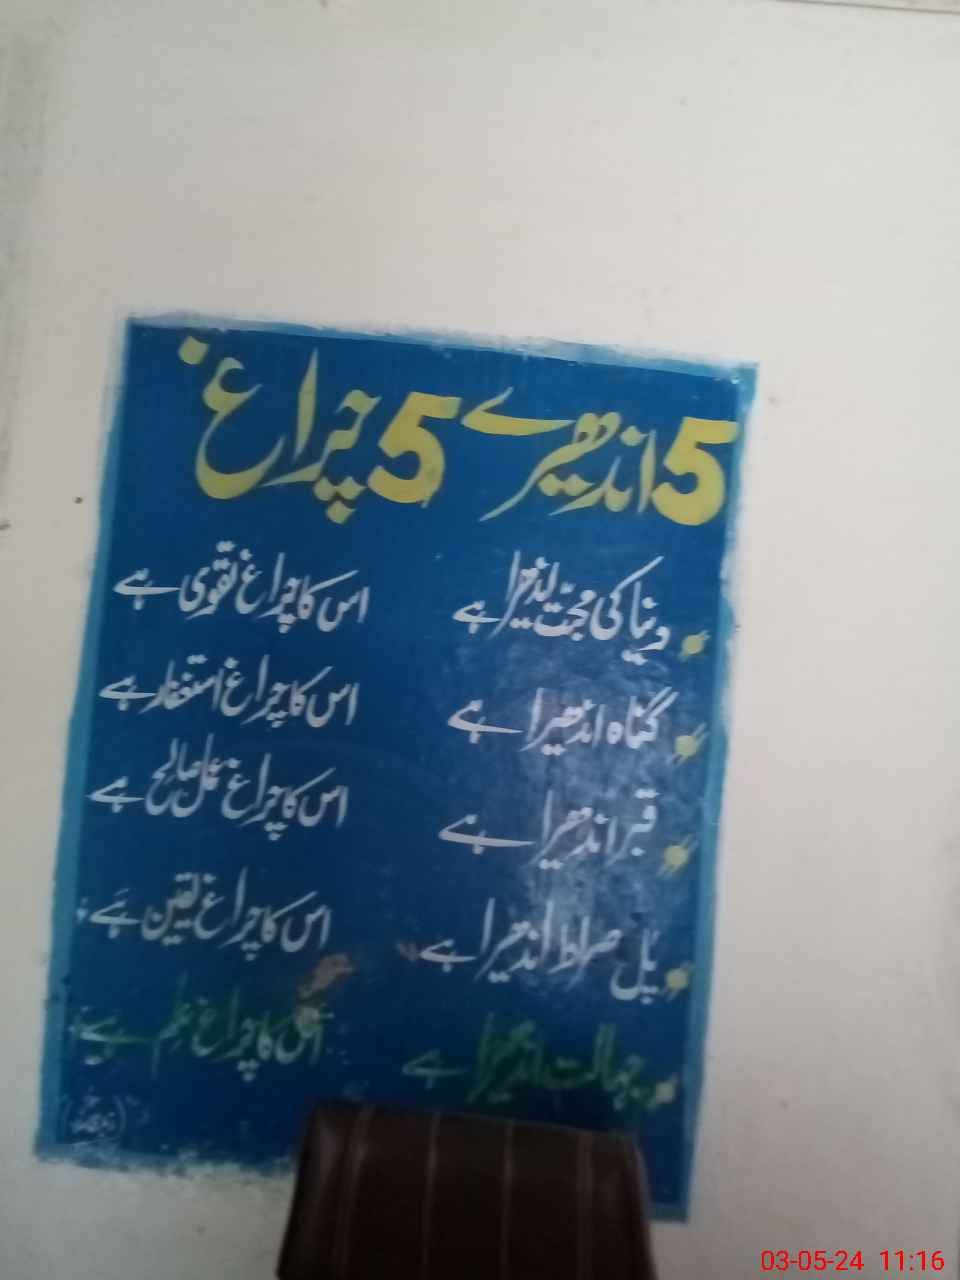 5 اندھیرے 5 چراغ
دنیا کی محبّت اندھیرا ہے اس کا چراغ تقویٰ ہے
گناہ اندھیرا ہے اس کا چراغ استغفار ہے
قبر اندھیرا ہے اس کا چراغ عمل صالح ہے
پُل صراط اندھیرا ہے اس کا چراغ یقین ہے
جہالت اندھیرا ہے اس کا چراغ علم ہے
03-05-24 11:16